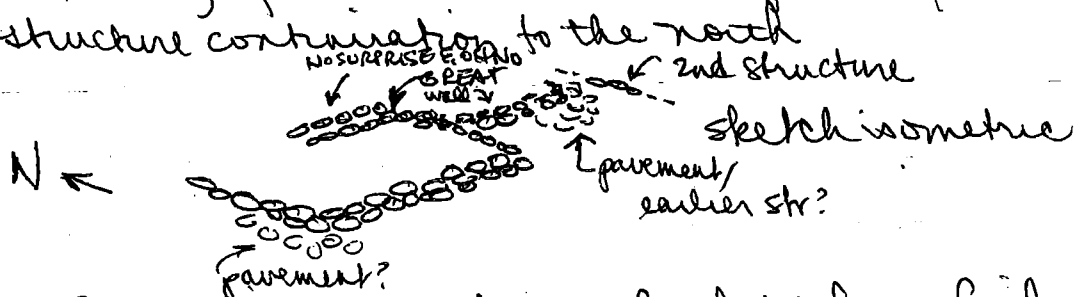 structure continuation to the north
NO SURPRISE
GREAT
well
2nd structure
sketch isometric
N
pavement/
earlier str?
pavement?